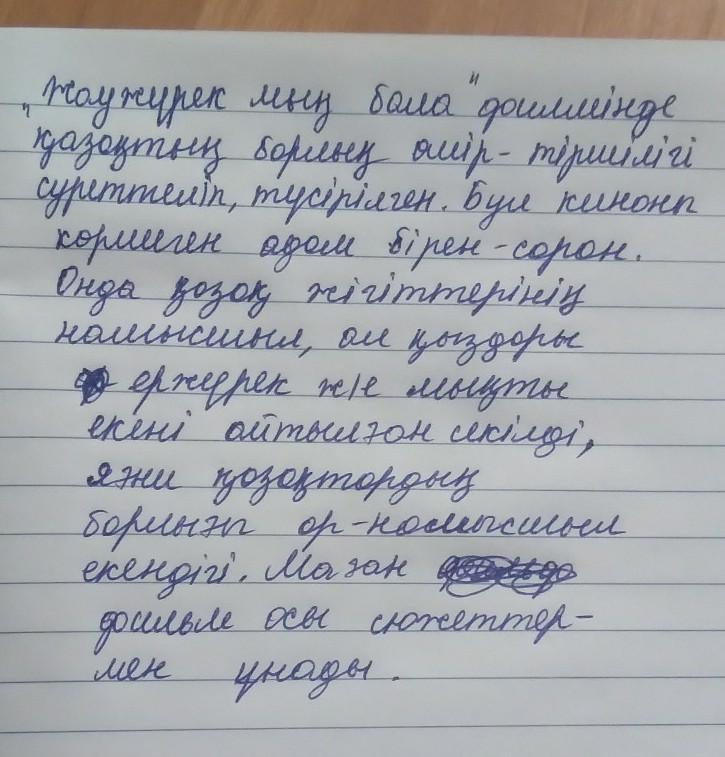 „Жаужүрек мың бала" фильмінде
қазақтың барлық өмір-тіршілігі
суреттеліп, түсірілген. Бұл киноны
көрмеген адам бірен-саран.
Онда қазақ жігіттерінің
намысшыл, ал қыздары
ержүрек ж/е мықты
екені айтылған секілді,
яғни қазақтардың
барлығы ар-намысшыл
екендігі. Маған
фильм осы сюжеттер-
мен ұнады.